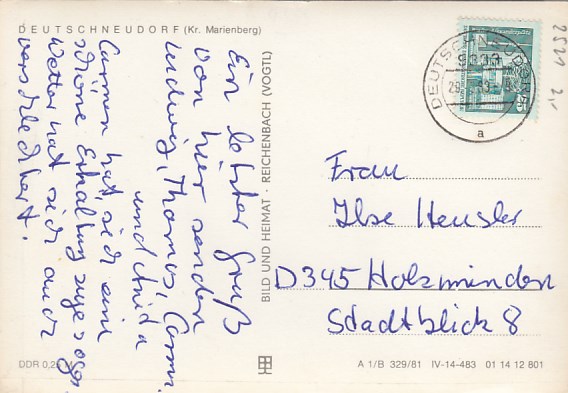 DEUTSCHNEUDORF (Kr. Marienberg)
Ein letzter Gruß
von hier senden
Ludwig, Thomas, Carmen
und Anita
Carmen hat sich eine
schöne Erkältung zugezogen
Wetter hat sich auch
verschlechtert.
BILD UND HEIMAT · REICHENBACH (VOGTL)
DEUTSCHNEUDORF
9333
a
25
2521
2,-
Frau
Ilse Hensler
D345 Holzminden
Stadtblick 8
DDR 0,20 M
A 1/B 329/81 IV-14-483 01 14 12 801